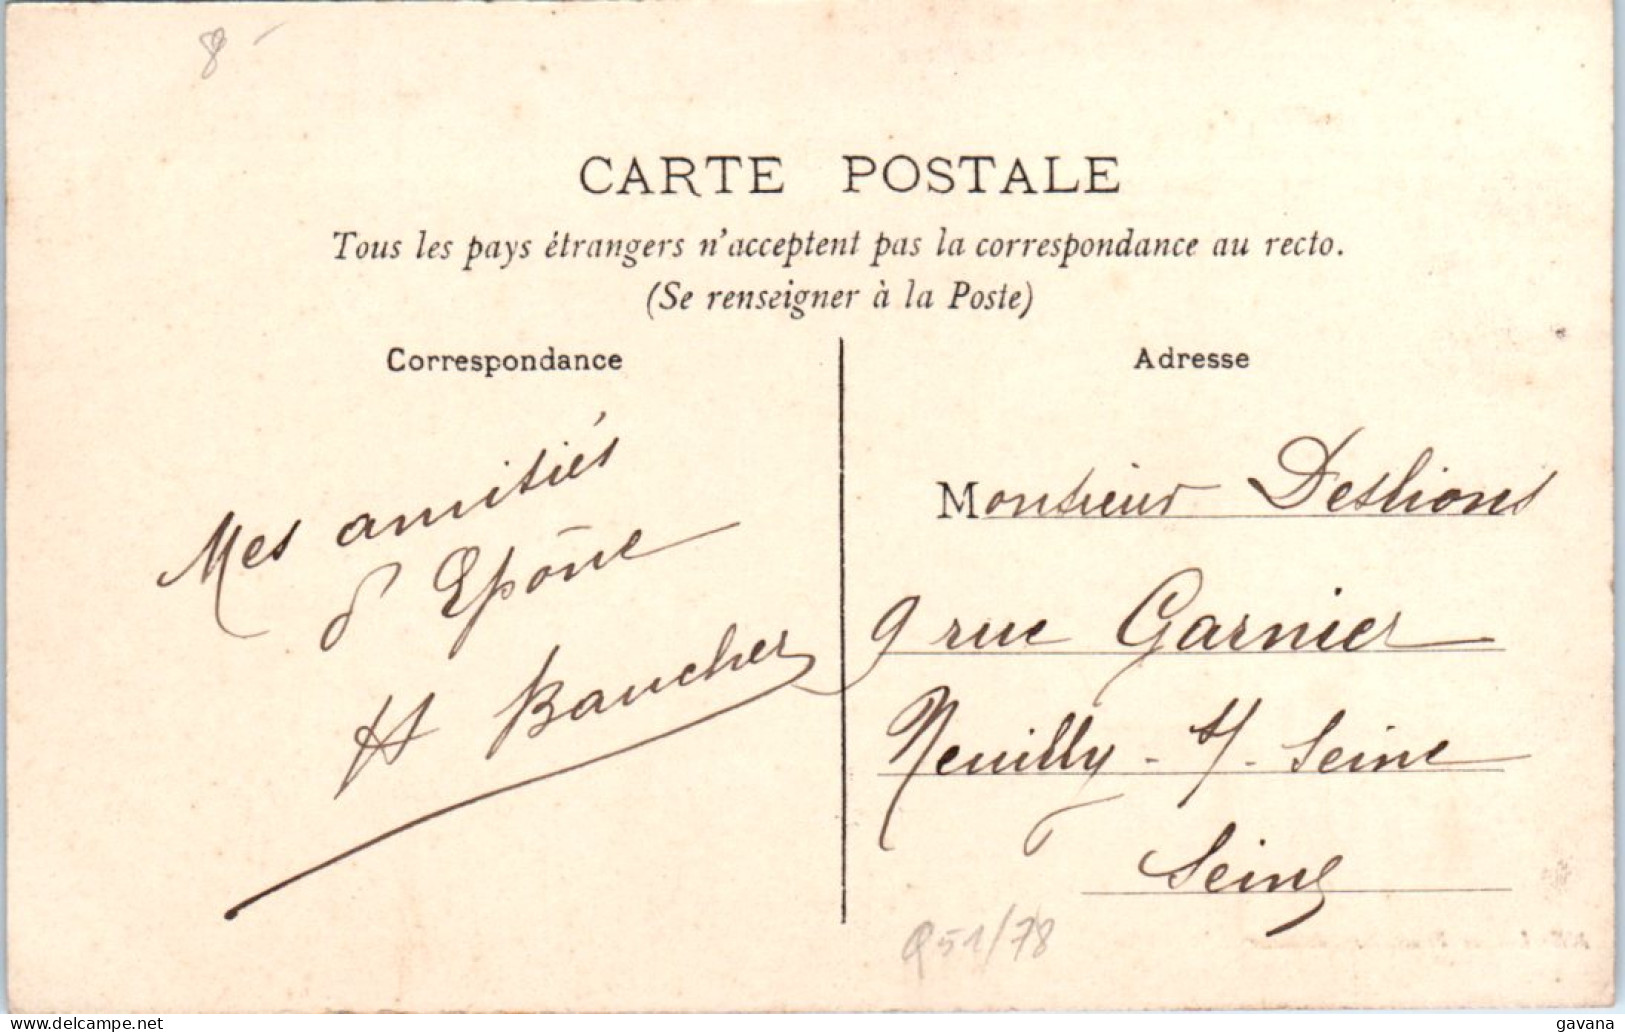 8 -
CARTE POSTALE
Tous les pays étrangers n'acceptent pas la correspondance au recto.
(Se renseigner à la Poste)
Correspondance
Mes amitiés
d'Epône
H Baucher
Adresse
Monsieur Deslions
9 rue Garnier
Neuilly - s/- Seine
Seine
Q51/78
www.delcampe.net
gavana